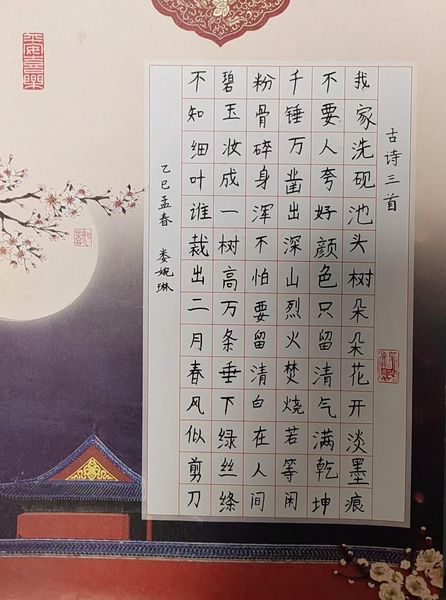 古诗三首
我家洗砚池头树朵朵花开淡墨痕
不要人夸好颜色只留清气满乾坤
千锤万凿出深山烈火焚烧若等闲
粉骨碎身浑不怕要留清白在人间
碧玉妆成一树高万条垂下绿丝绦
不知细叶谁裁出二月春风似剪刀
乙巳孟春 娄婉琳
平安喜乐